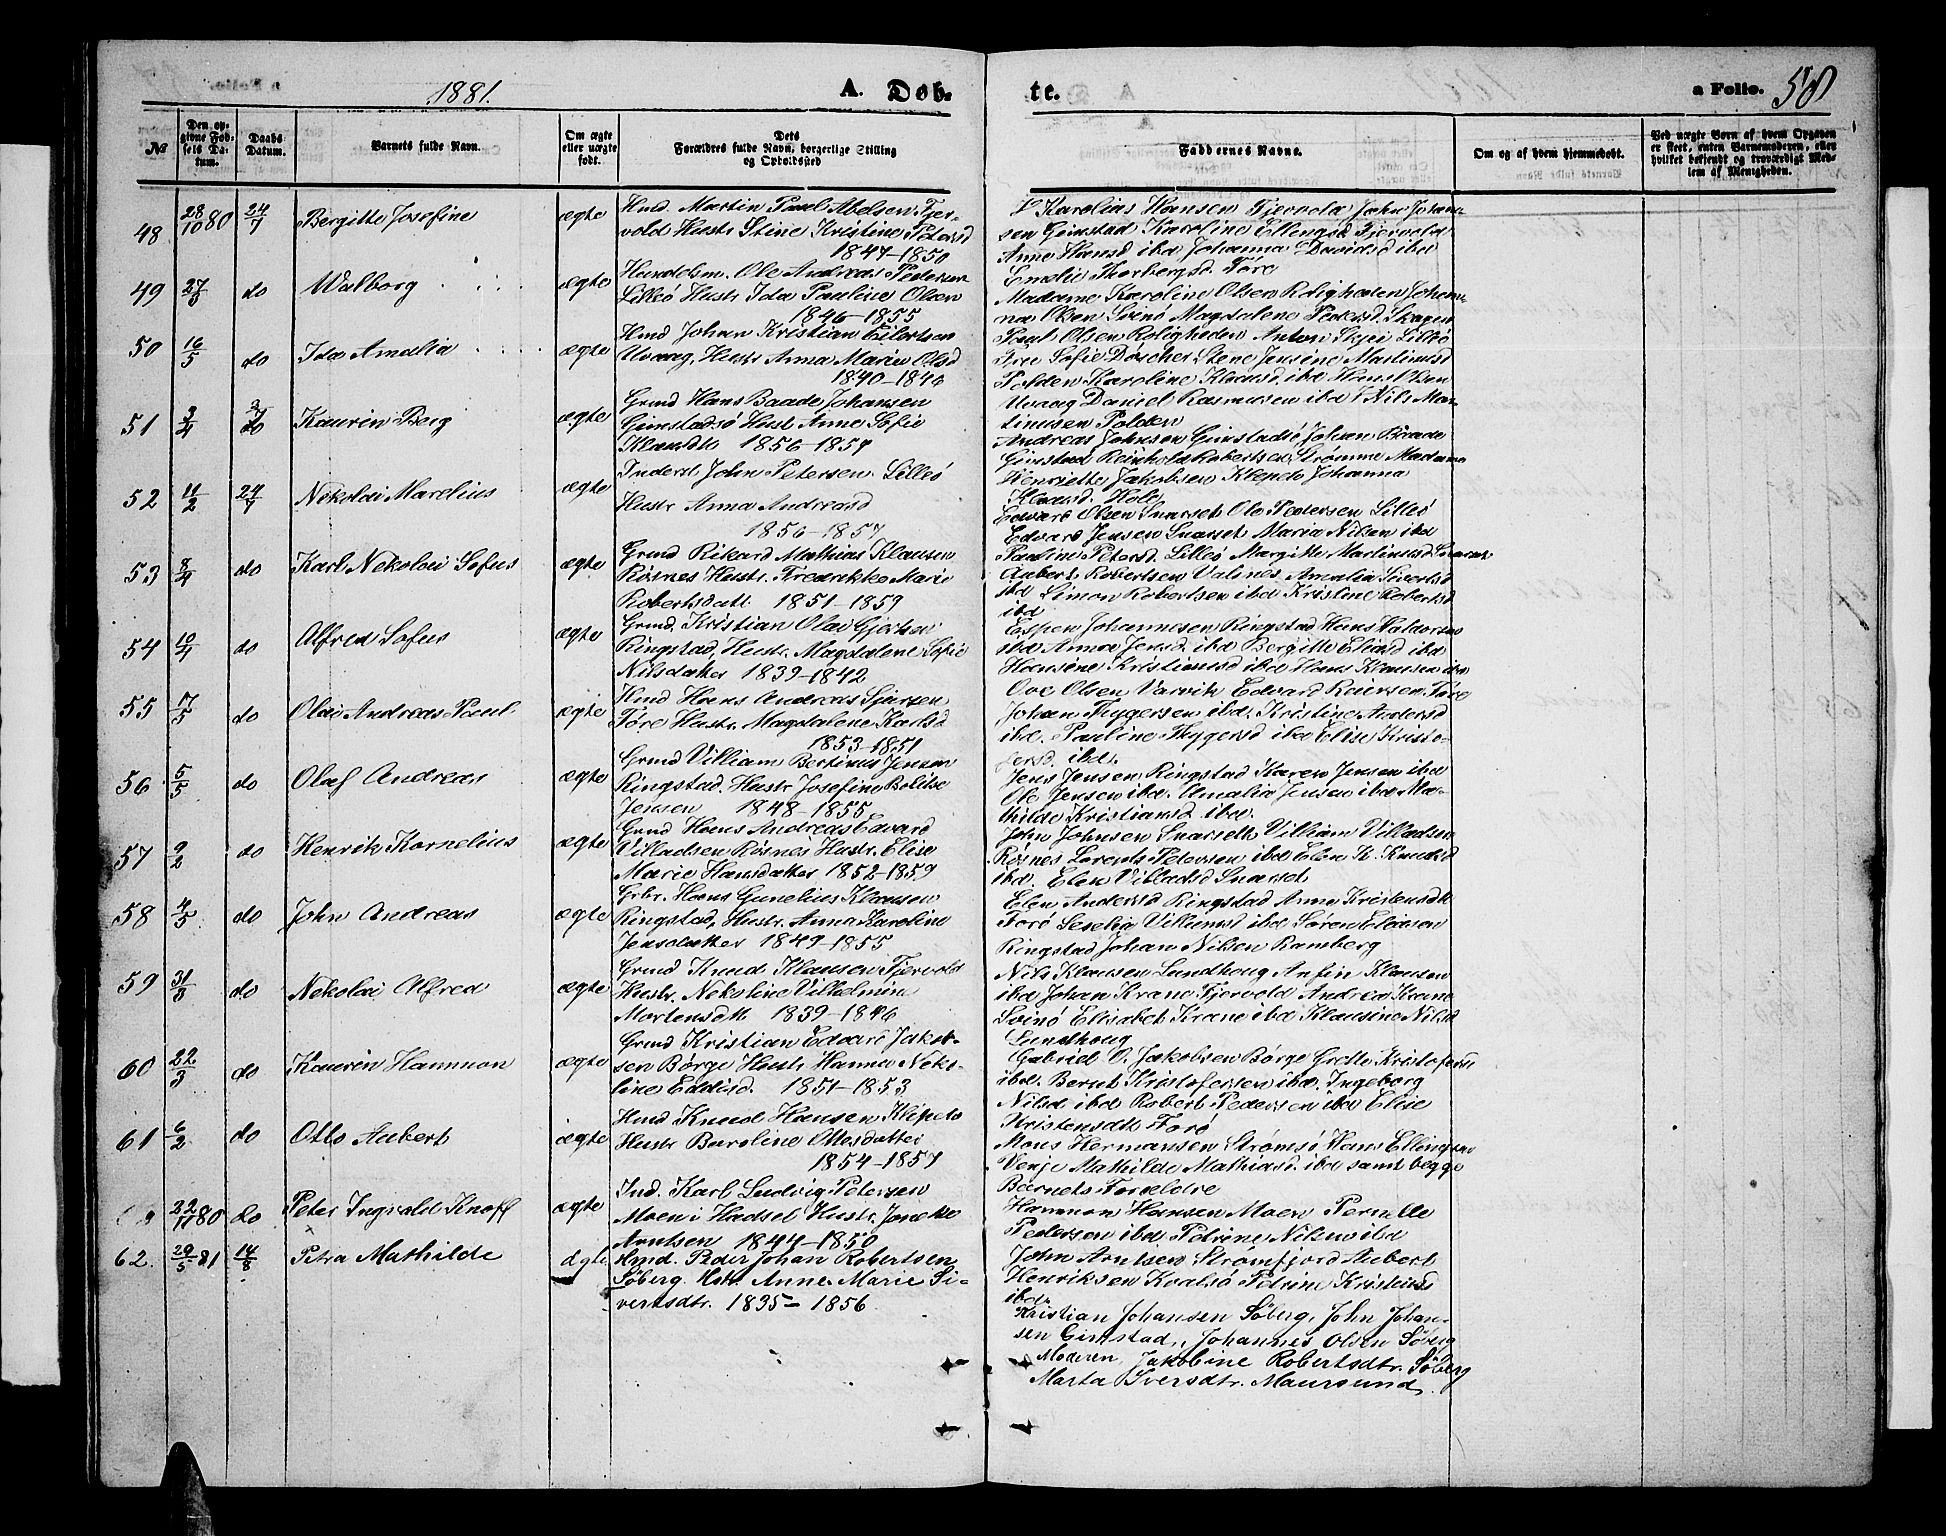 1881.
A. Døb-
te.
a Folio. 58
№
Den op-
givne Fød-
sels Da-
tum.
Daabs
Datum.
Barnets fulde Navn.
Om ægte
eller uægte
født.
Dets
Forældres fulde Navn, borgerlige Stilling
og Opholdssted
Faddernes Navne.
Om og af hvem hjemmedøbt.
Ved uægte Børn af hvem Opgaven
er skeet, enten Barnemoderen, eller
hvilket bekjendt og troværdigt Med-
lem af Menigheden.
48 28/10 80 24/7 Bergitte Josefine ægte
Hmd Martin Paul Abelsen Fjer-
vold Hustr Stine Kristine Petersd
1847–1850
Karelius Hansen Fjervold John Johan-
sen Gimstad Karoline Ellingsd Fjervold
Anne Hansd ibd Johanna Davidsd ibd
Emelie Thorbergsd. Føre
49 27/3 do Walborg ægte
Handelsm. Ole Andreas Pedersen
Lilleö Hustr Ida Pauline Olsen
1846–1855
Madame Karoline Olsen Roligheden Johan-
na Olsen Svinö Magdalene Pedersd. Skagen
Paul Olsen Roligheden Anton Skjei Lilleö
50 16/5 do Ida Amalia ægte
Hmd Johan Kristian Eilertsen
Uvaag, Hustr Anna Marie Olsd
1840–1843
Frue Sofie Döscher Stene Jensine Martinusd
Polden Karoline Klausd. ibd Hans Olsen
Uvaag Daniel Rasmussen ibd Nils Mar-
tinusen Polden
51 3/4 do Kaurin Berg ægte
Grmd Hans Baade Johansen
Gimstadsö Hust Anne Sofie
1856–1854
Andreas Johnsen Gimstadsö Johan Baade
Gimstad Reinhold Robertsen Strömme Madame
Henriette Jakobsen Klepdo Johanna
Klausd. Hole
52 11/2 24/7 Nekolai Marelius ægte
Inderst John Petersen Lilleö
Hustr Anna Andreasd
1856–1857
Edvard Olsen Snarset Ole Pedersen Lilleö
Edvard Jensen Snarset Maria Nilsen ibd
Pauline Petersd. Lilleö Margitte Martinusd Snarset
53 8/4 do Karl Nekolai Sofus ægte
Grmd Rikard Mathias Klausen
Rösnes Hustr. Fredrikke Marie
Robertsdatt. 1851–1859
Aubert Robertsen Valfnes Amalia Sivertsd
ibd Simon Robertsen ibd Kristine Robertsd
ibd
54 10/4 do Alfred Sofus ægte
Grmd. Kristian Olai Gjertsen
Ringstad, Hustr. Magdalene Sofie
Nilsdatter 1839–1842
Espen Johannesen Ringstad Hans Haldorsen
ibd Anna Jensd ibd Bergitte Eliasd ibd
Hansine Kristiansd ibd Hans Klausen ibd
55 17/5 do Olai Andreas Paul ægte
Hmd Hans Andreas Sjursen
Føre Hustr. Magdalene Karlsd
1853–1851
Ove Olsen Varvik Edvard Reiersen Føre
Johan Thygersen ibd. Kristine Andersd
ibd. Pauline Thygersd ibd Elise Kristo-
fersd. ibd.
56 5/5 do Olaf Andreas ægte
Grmd Villiam Bertinus Jensen
Ringstad. Hustr Josefine Bolitse
Jensen 1848–1855
Jens Jensen Ringstad Karen Jensen ibd
Ole Jensen ibd. Amalia Jensen ibd Ma-
thilde Kristiansd ibd.
57 9/2 do Henrik Kornelius ægte
Grmd Hans Andreas Edvard
Villadsen Rösnes Hustr. Elise
Marie Hansdatter 1852–1859
John Johnsen Snarseth Villiam Villadsen
Rösnes Lorents Petersen ibd Elen K. Knudsd
ibd. Elen Villadsd Snarset
58 4/5 do John Andreas ægte
Grbr. Hans Gunelius Klausen
Ringstad, Hustr. Anna Karoline
Jensdatter 1849–1855
Elen Andersd Ringstad Anne Kristensdt
Forö Seselia Villumsd ibd Sören Eliasen
Ringstad Johan Nilsen Ramberg
59 31/3 do Nekolai Alfred ægte
Grmd Knud Klausen Fjervold
Hustr. Nekoline Vilhelmine
Mortensdt 1839–1846
Nils Klausen Lundhoug Anfin Klausen
ibd Johan Krane Fjervold Andrea Krane
Svinö Elisabet Krane ibd Klausine Nilsd
Lundhoug
60 22/3 do Kaurin Hammon ægte
Grmd Kristian Edvard Jakob-
sen Börge Hustr Hanna Neko-
line Eddisd. 1851–1853
Gabriel O. Jakobsen Börge Grette Kristofersd
ibd. Bernt Kristofersen ibd. Ingeborg
Nilsd ibd Robert Pedersen ibd Elise
Kristensdt Forö
61 6/2 do Otto Aubert ægte
Hmd Knud Hansen Klipdo
Hustr Baroline Ottosdatter
1854–1857
Mons Hermansen Strömsö Hans Ellingsen
Venje Mathilde Mathiasd. ibd samt begge
Barnets Forældre
22/11 80 do Peter Ingvald Knoff ægte
Ind. Karl Ludvig Petersen
Moen i Hadsel Hustr. Jonette
Arntsen 1844–1850
Hammon Hansen Moen Pernelle
Pedersen ibd Petrine Nilsen ibd
John Arntsen Strömfjord Aubert
Henriksen Kvalsö Petrine Kristensd
ibd
62. 29/5 81 14/8 Petra Mathilde ægte
Hmd. Peder Johan Robertsen
Söberg. Hstr. Anne Marie Si-
vertsdtr. 1835–1856
Kristian Johansen Söberg, John Johan-
sen Gimstad, Johannes Olsen Söberg
Moderen, Jakobine Robertsdtr. Söberg
Marta Iversdtr. Maursund.